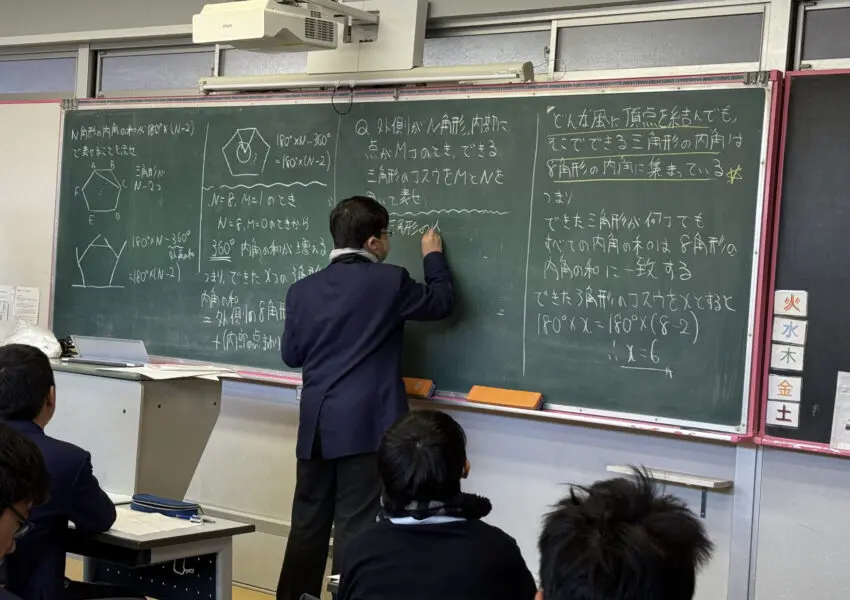 N角形の内角の和が180°×(N-2)
で表せることを示せ
A B
F C
E D
三角形が
N-2つ
180°×N-360°
=180°×(N-2)
180°×N-360°
=180°×(N-2)
N=8, M=1のとき
N=8, M=0のときから
360° 内角の和が増える
つまり、できたxつの3角形
内角の和
=外側の8角形
+(内)部の点まわり
Q 外側がN角形、内部に
点がMつのとき、できる
三角形のコスウをMとNを
用いて表せ
三角形の
どんな風に頂点を結んでも、
そこでできる三角形の内角は
8角形の内角に集まっている
つまり
できた三角形が何こでも
すべての内角の和は8角形の
内角の和に一致する
できた3角形のコスウをxとすると
180°×x=180°×(8-2)
∴x=6
火
水
木
金
土